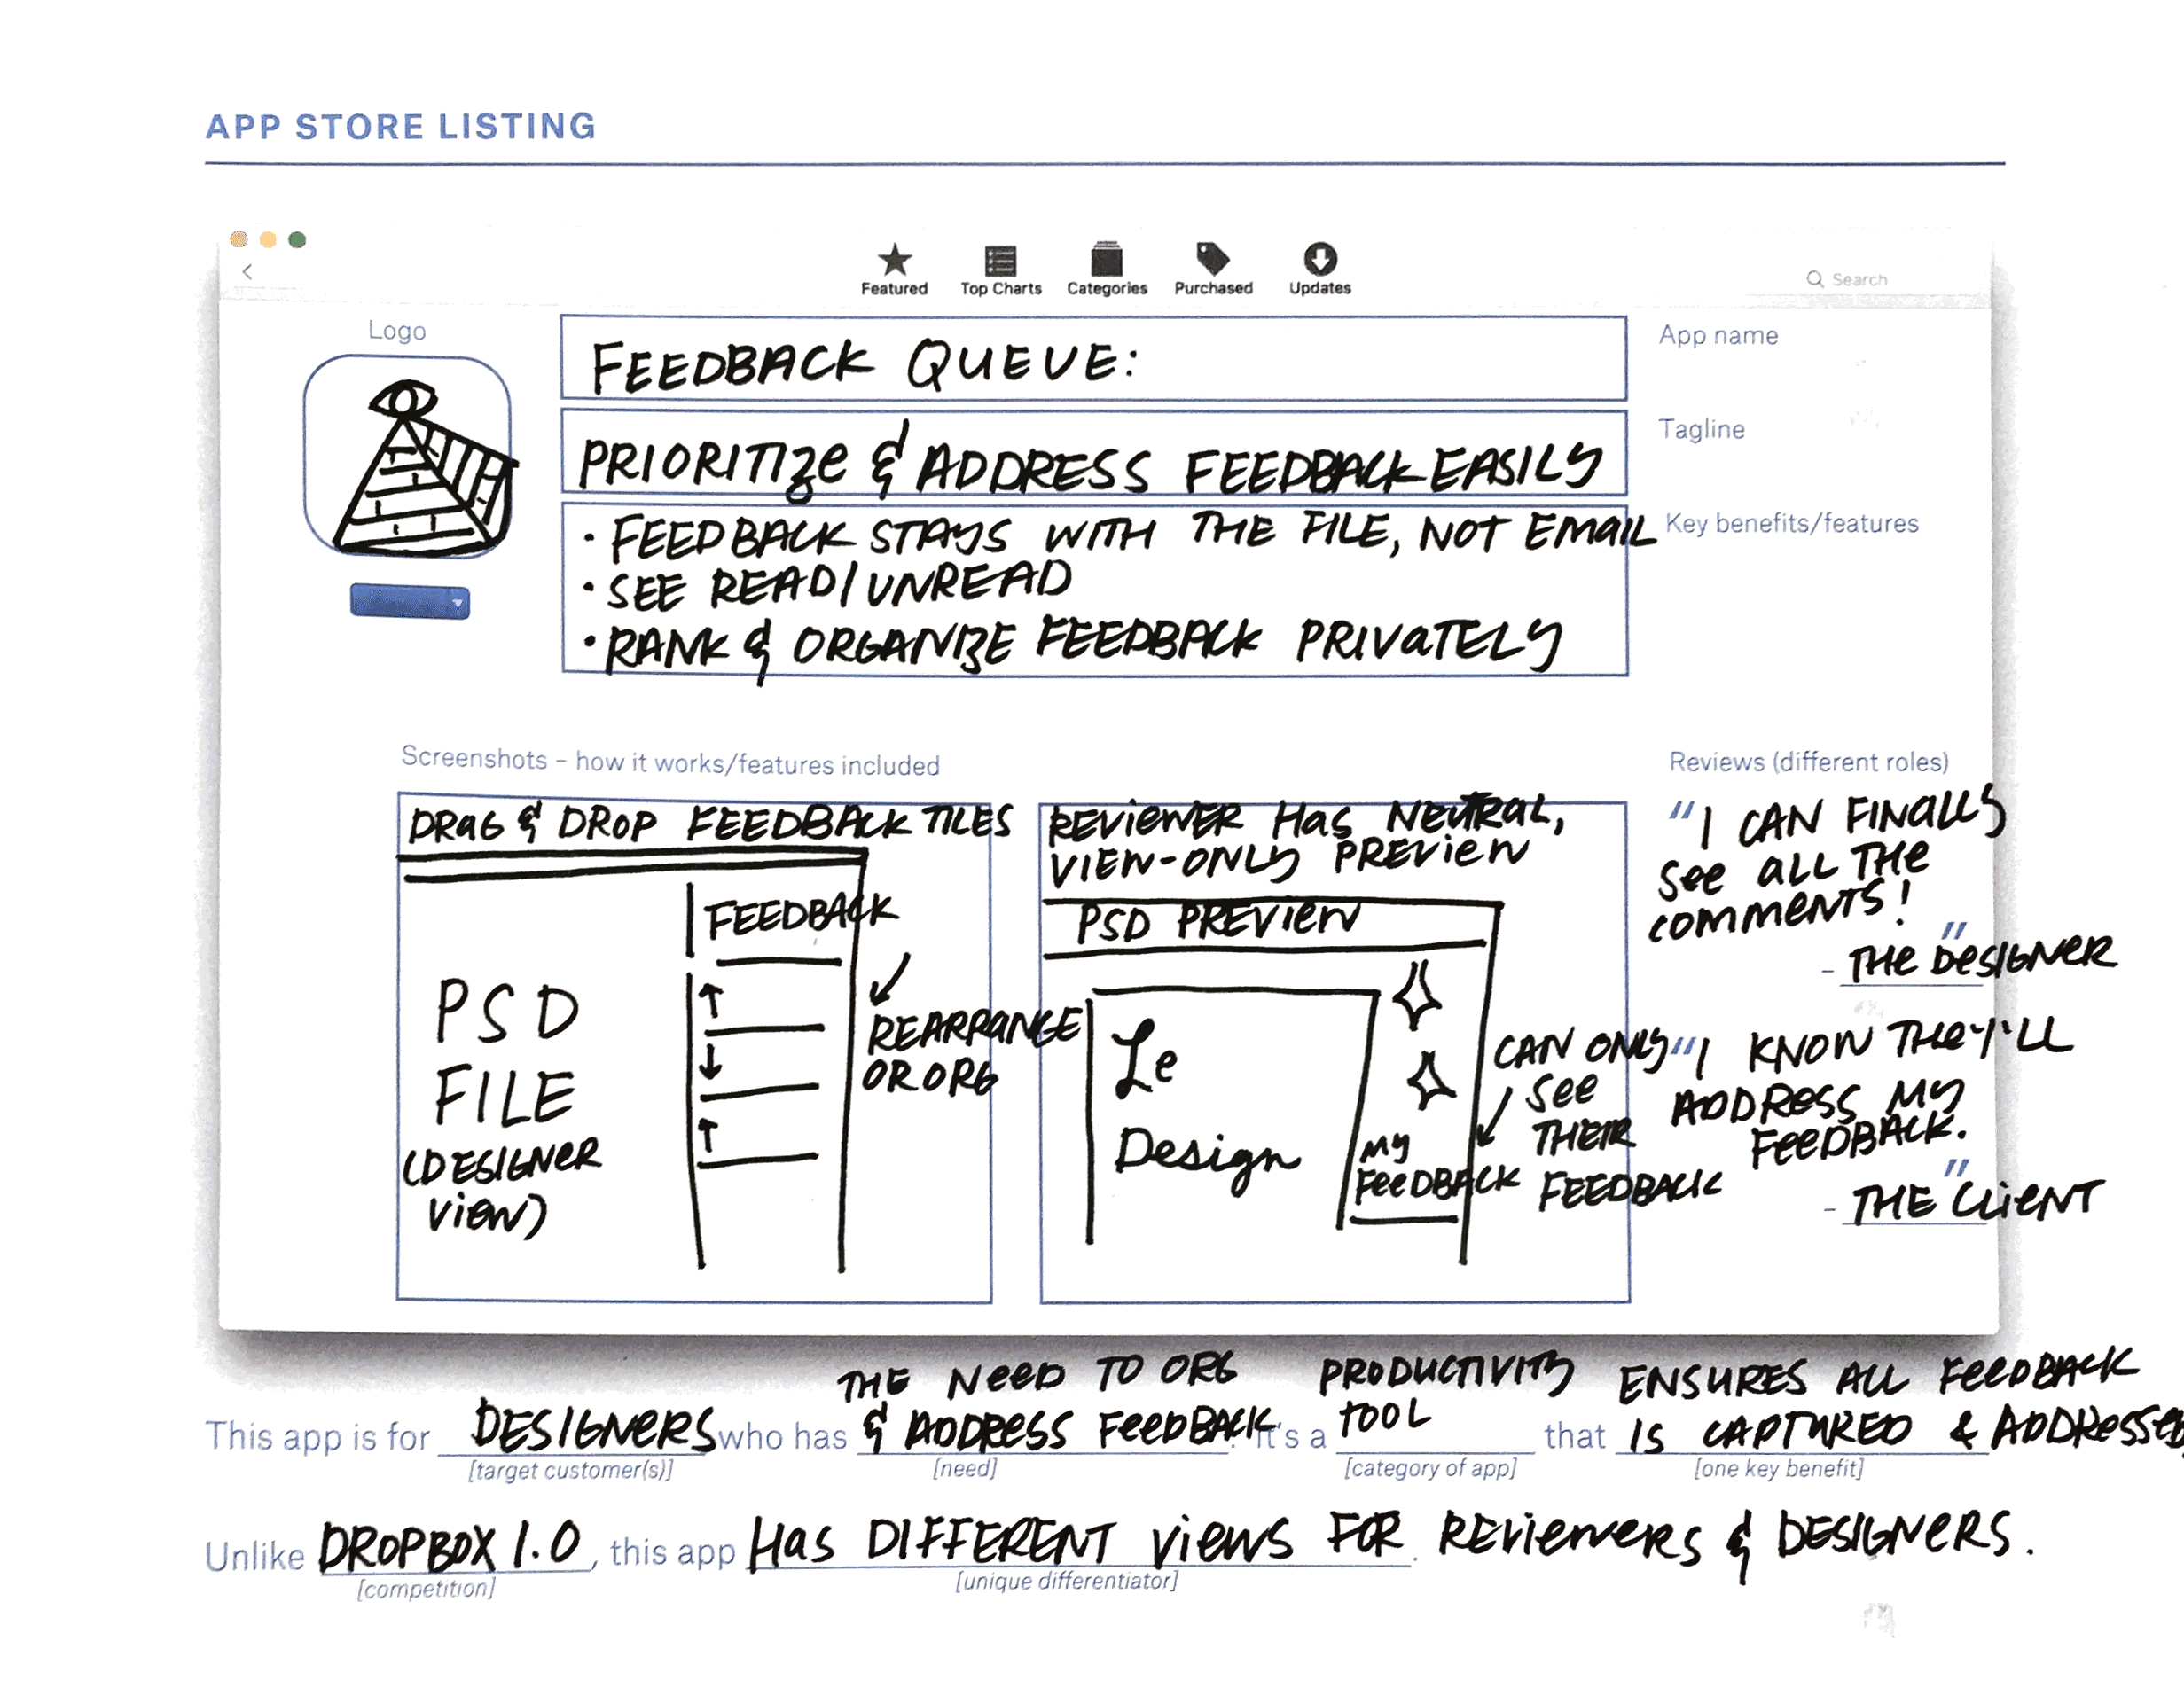 APP STORE LISTING
Featured
Top Charts
Categories
Purchased
Updates
Search
Logo
FEEDBACK QUEUE:
App name
PRIORITIZE & ADDRESS FEEDBACK EASILY
Tagline
• FEEDBACK STAYS WITH THE FILE, NOT EMAIL
Key benefits/features
• SEE READ/UNREAD
• RANK & ORGANIZE FEEDBACK PRIVATELY
Screenshots – how it works/features included
DRAG & DROP FEEDBACK TILES
FEEDBACK
PSD
FILE
(DESIGNER
VIEW)
REARRANGE
OR ORG
REVIEWER HAS NEUTRAL,
VIEW-ONLY PREVIEW
PSD PREVIEW
Le
Design
MY
FEEDBACK
CAN ONLY
SEE
THEIR
FEEDBACK
Reviews (different roles)
"I CAN FINALLY
SEE ALL THE
COMMENTS!
"
- THE DESIGNER
"I KNOW THEY'LL
ADDRESS MY
FEEDBACK.
"
- THE CLIENT
THE NEED TO ORG PRODUCTIVITY ENSURES ALL FEEDBACK
This app is for DESIGNERS who has & ADDRESS FEEDBACK. It's a TOOL that IS CAPTURED & ADDRESSED
[target customer(s)] [need] [category of app] [one key benefit]
Unlike DROPBOX 1.0, this app HAS DIFFERENT VIEWS FOR REVIEWERS & DESIGNERS.
[competition] [unique differentiator]